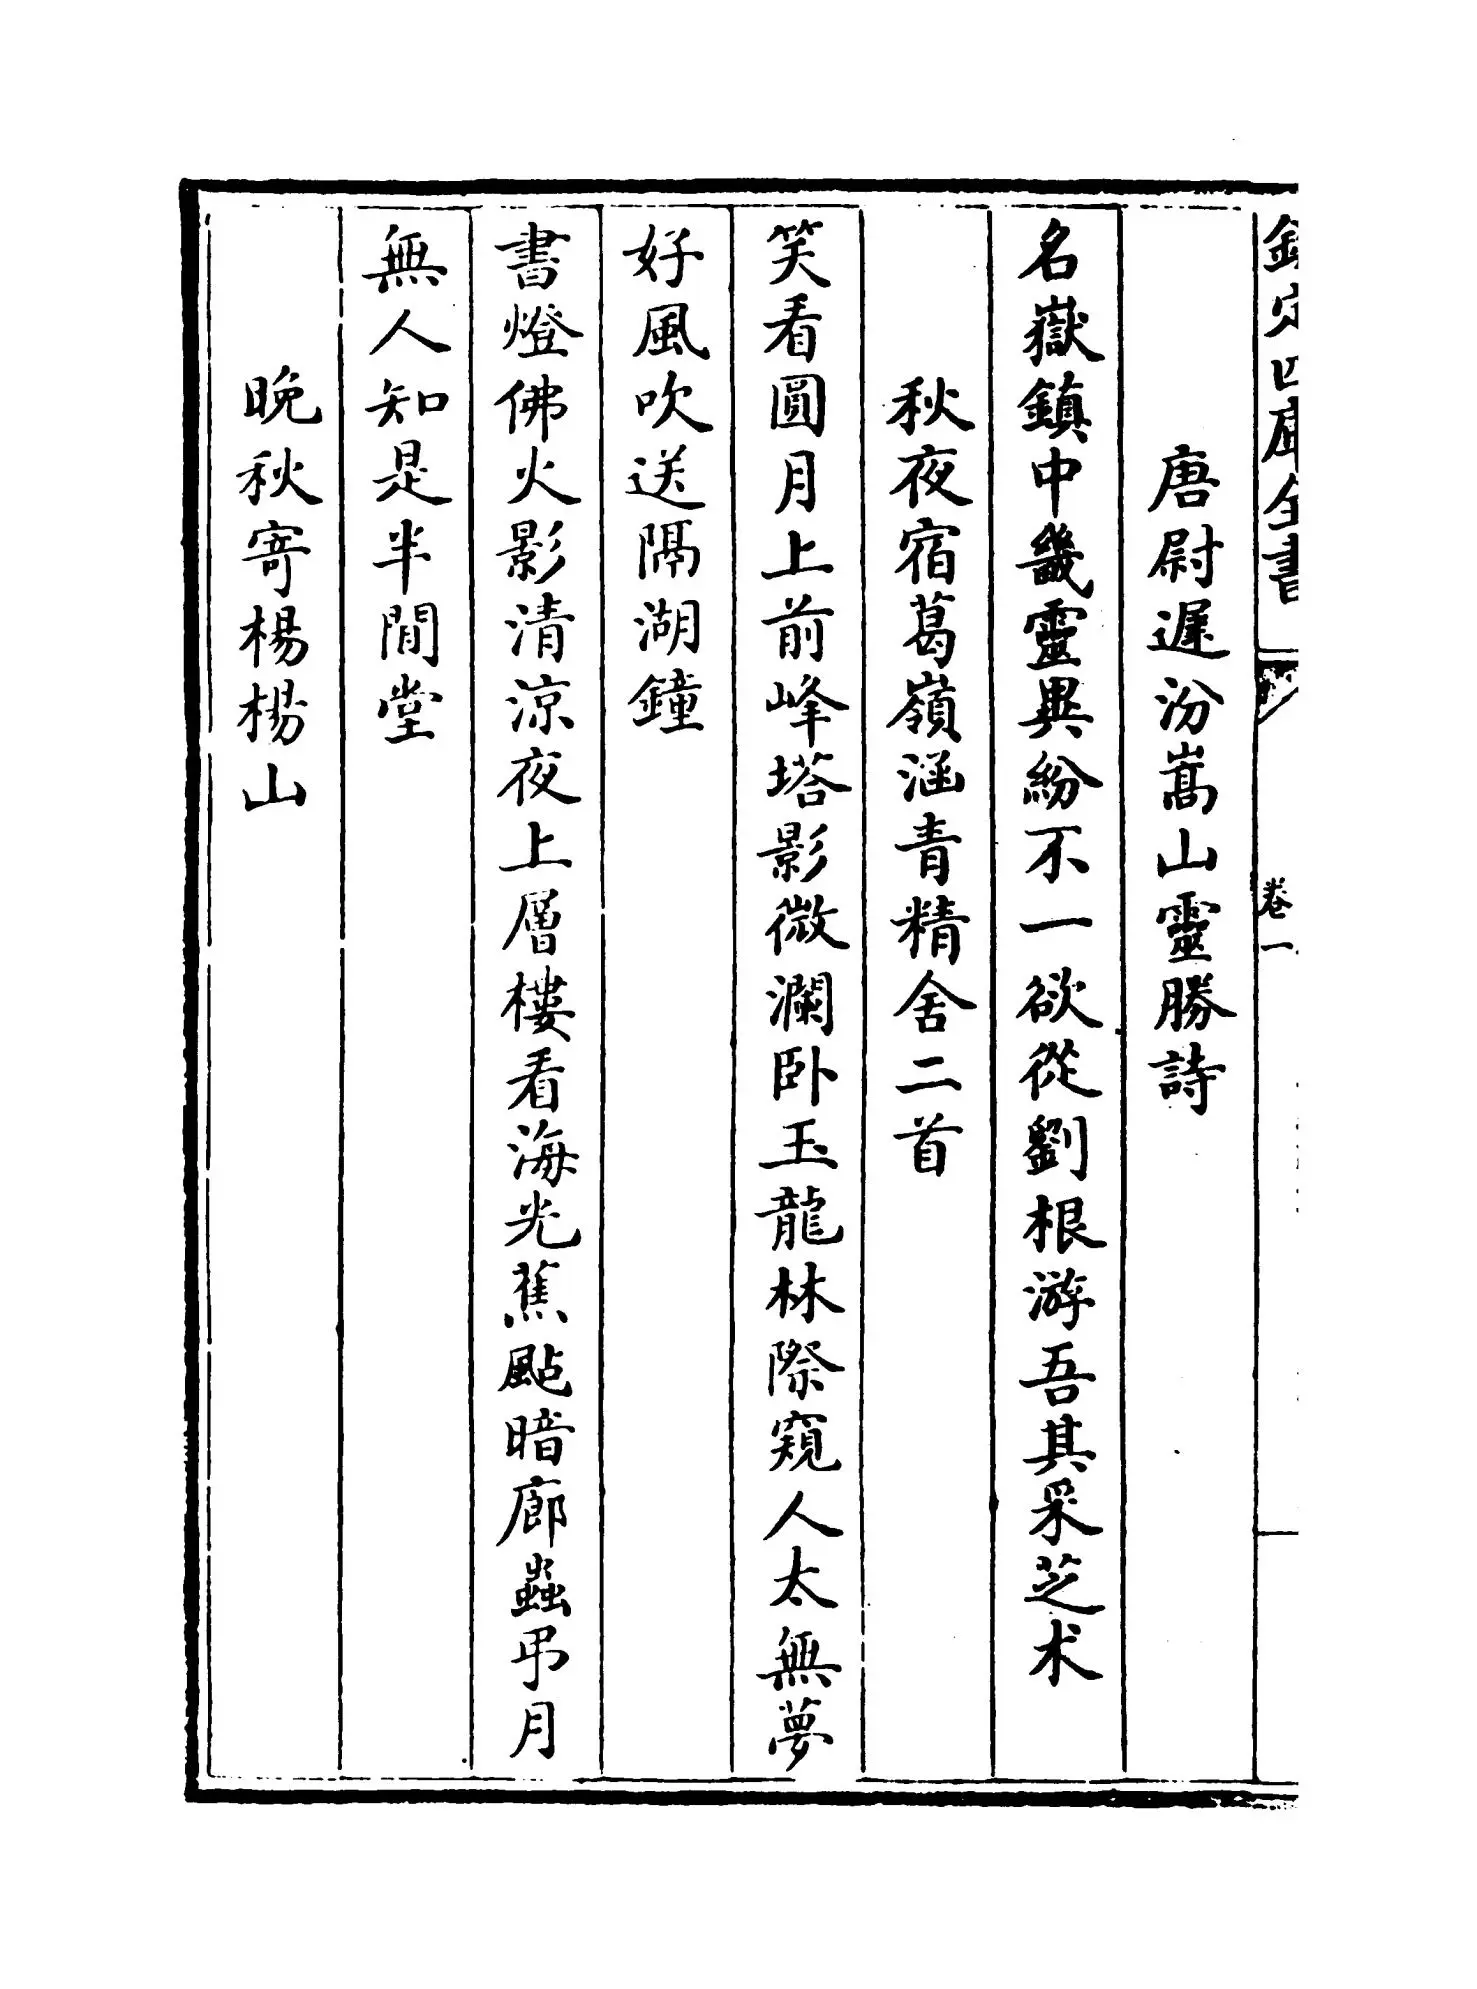 欽定四庫全書
卷一
唐尉遲汾嵩山靈勝詩
名嶽鎮中畿靈異紛不一欲從劉根游吾其采芝术
秋夜宿葛嶺涵青精舍二首
笑看圓月上前峰塔影微瀾卧玉龍林際窺人太無夢
好風吹送隔湖鐘
書燈佛火影清涼夜上層樓看海光蕉颭暗廊蟲弔月
無人知是半閒堂
晚秋寄楊楊山